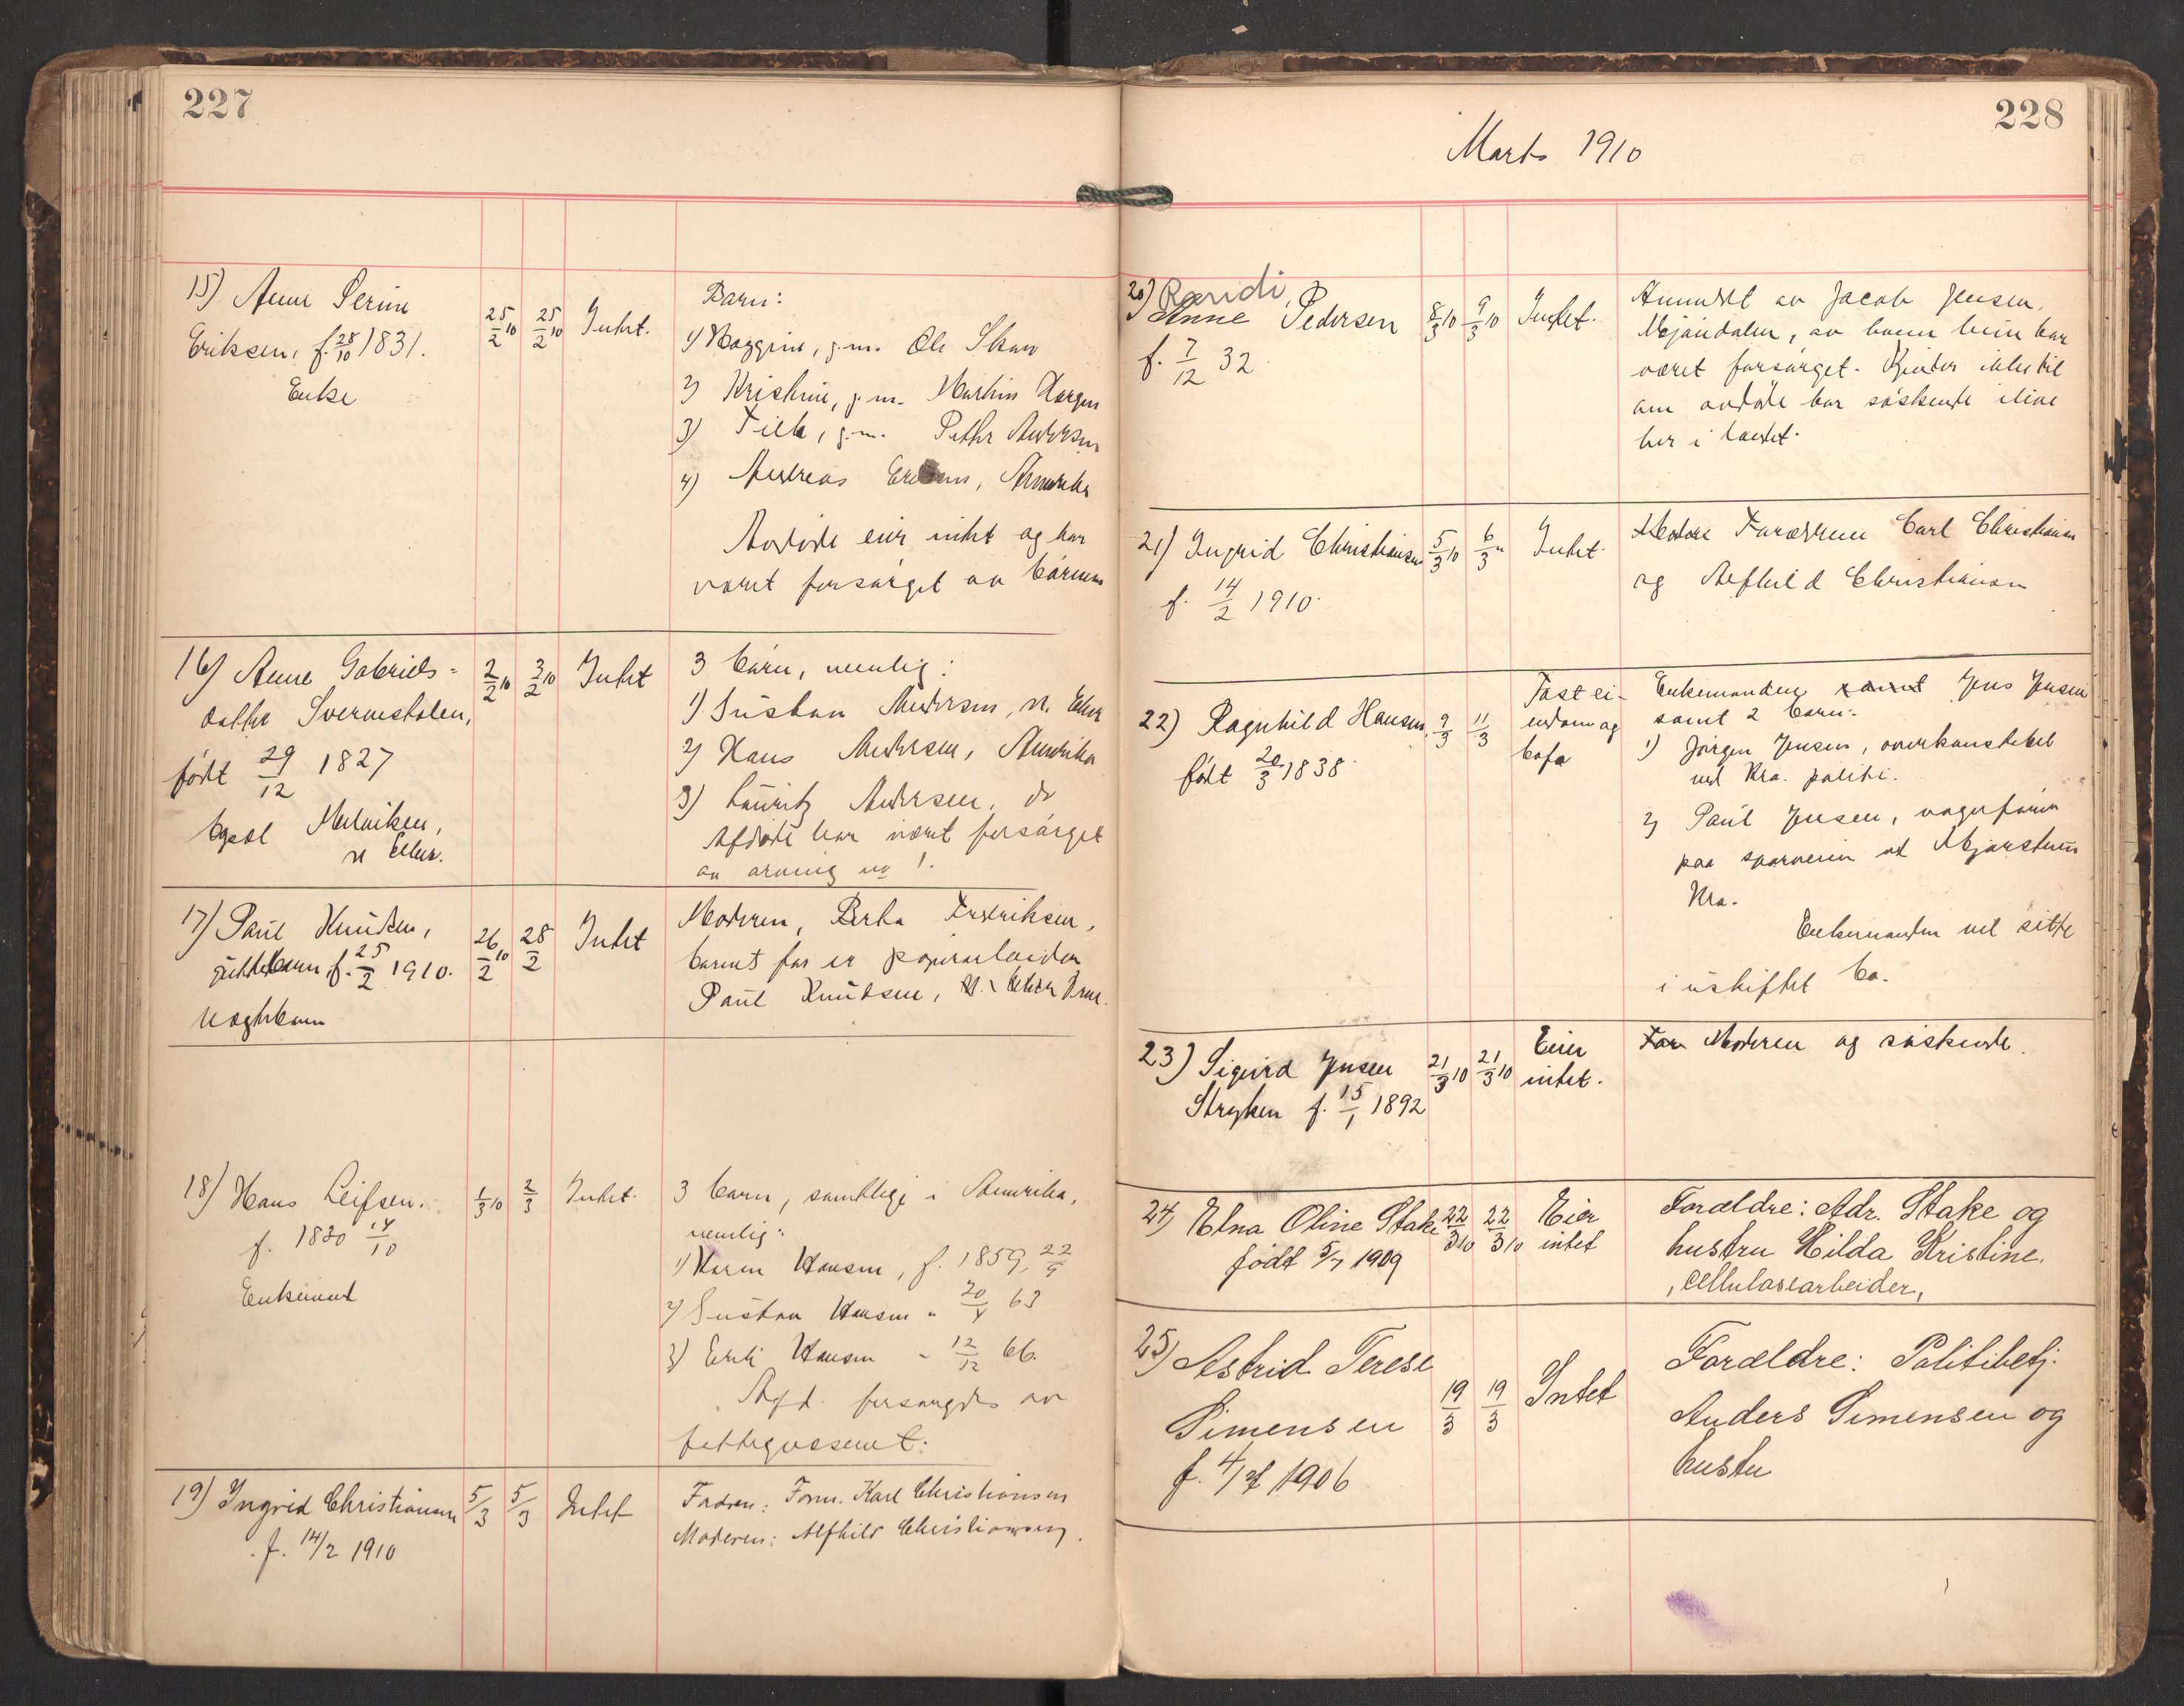 227
15) Anne Serine
Eriksen, f. 28/10 1831.
Enke
25/2 10
25/2 10
Intet.
Barn:
1) Maggine, g.m. Ole Skau
2) Kristine, g.m. Martin
3) g.m. Petter Andersen
4) Andreas Amerika
Avdøde eier intet og har
været forsørget av børnene
16) Anne Gabriels-
datter
født 29/12 1827
bopæl
2/2 10
3/2 10
Intet
3 børn, nemlig:
1) Gustav Andersen, n.
2) Hans Andersen, Amerika
3) Lauritz Andersen, do
Afdøde har været forsørget
av arving no 1.
17) Paul Knudsen,
guttebarn, f. 25/2 1910.
uægtebarn
26/2 10
28/2
Intet
Moderen, Berta Fredriksen,
barnets far er papirarbeider
Paul Knudsen,
18) Hans Leifsen.
f. 1830 14/10
Enkemand
1/3 10
2/3
Intet.
3 barn, samtlige i Amerika,
nemlig:
1) Karen Hansen, f. 1859, 22/9
2) Gustav Hansen " 20/4 63
3) Hansen " 12/12 66.
Afd. forsørgdes av
fattigvæsenet.
19) Ingrid Christiansen
f. 14/2 1910
5/3
5/3
Intet
Fadren: Form. Karl Christiansen
Moderen: Alfhild Christiansen.
228
Marts 1910
20) Randi
Anne Pedersen
f. 7/12 32
8/3 10
9/3 10
Intet.
Anmeldt av Jacob Jensen,
Mjøndalen, av hvem hun har
været forsørget. Kjender ikke til
om avdøde har søskende ilive
her i landet.
21) Ingrid Christiansen
f. 14/2 1910.
5/3 10
6/3 "
Intet.
Forældrene Carl Christiansen
og Alfhild Christiansen
22) Ragnhild Hansen,
født 20/3 1838
9/3
11/3
Fast ei-
endom og
bofæ
Enkemanden Jens Jensen
samt 2 barn:
1) Jørgen Jensen, overkonstabel
ved Kra. politi.
2) Paul Jensen, vognfører
paa sporveien
Kra.
Enkemanden vil sitte
i uskiftet bo.
23) Sigurd Jensen
Stryken f. 15/1 1892
21/3 10
21/3 10
Eier
intet.
Moderen og søskende.
24) Elna Oline Stake
født 5/7 1909
22/3 10
22/3 10
Eier
intet
Forældre: Adr. Stake og
hustru Hilda Kristine.
, cellulosearbeider,
25) Astrid Terese
Simensen
f. 4/7 1906
19/3
19/3
Intet
Forældre: Politibetj.
Anders Simensen og
hustru